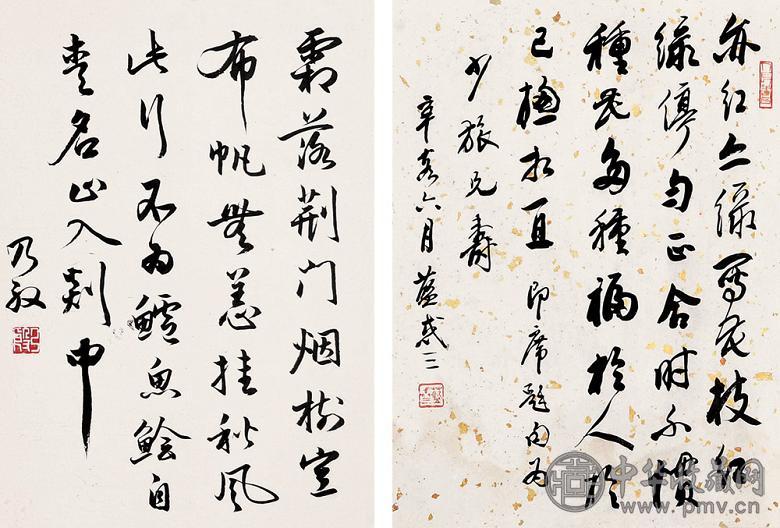 亦红亦绿写花枝红
绿停匀正合时不惯
種花多種福於人於
己總相宜即席题句为
少旅兄壽
辛亥六月
霜落荆门烟树空
布帆無恙挂秋风
此行不为鲈鱼鲙自
爱名山入剡中
中华收藏网
www.pmv.cn